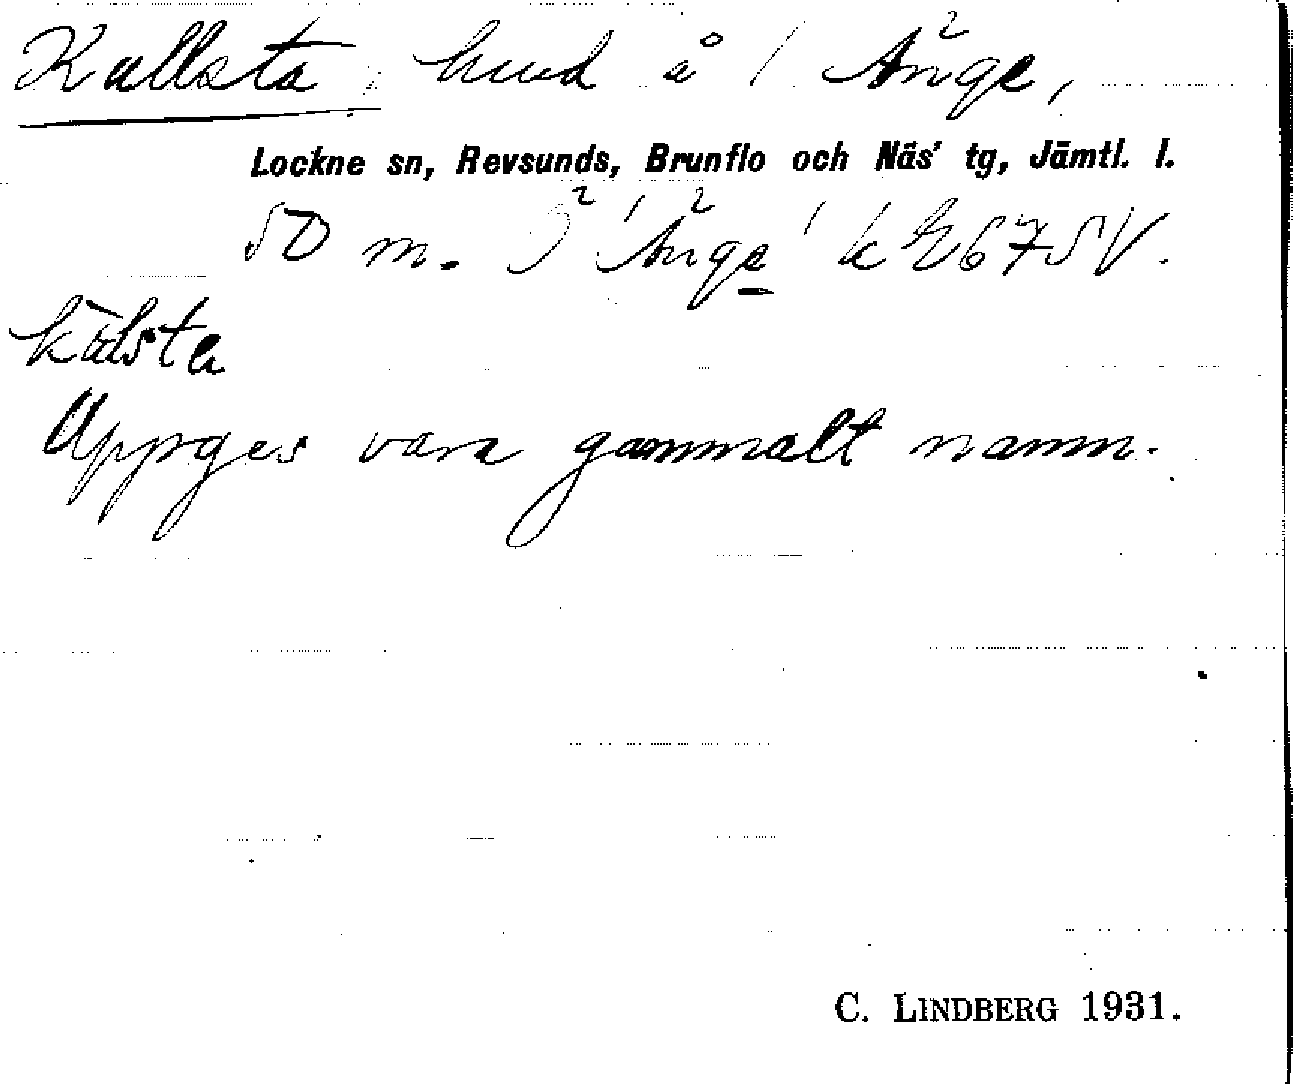 Kallsta, hund å 1 Änge,
Lockne sn, Revsunds, Brunflo och Näs' tg, Jämtl. l.
50 m. Ö 'Änge' k
kälsta
Uppges vara gammalt namn.
C. LINDBERG 1931.